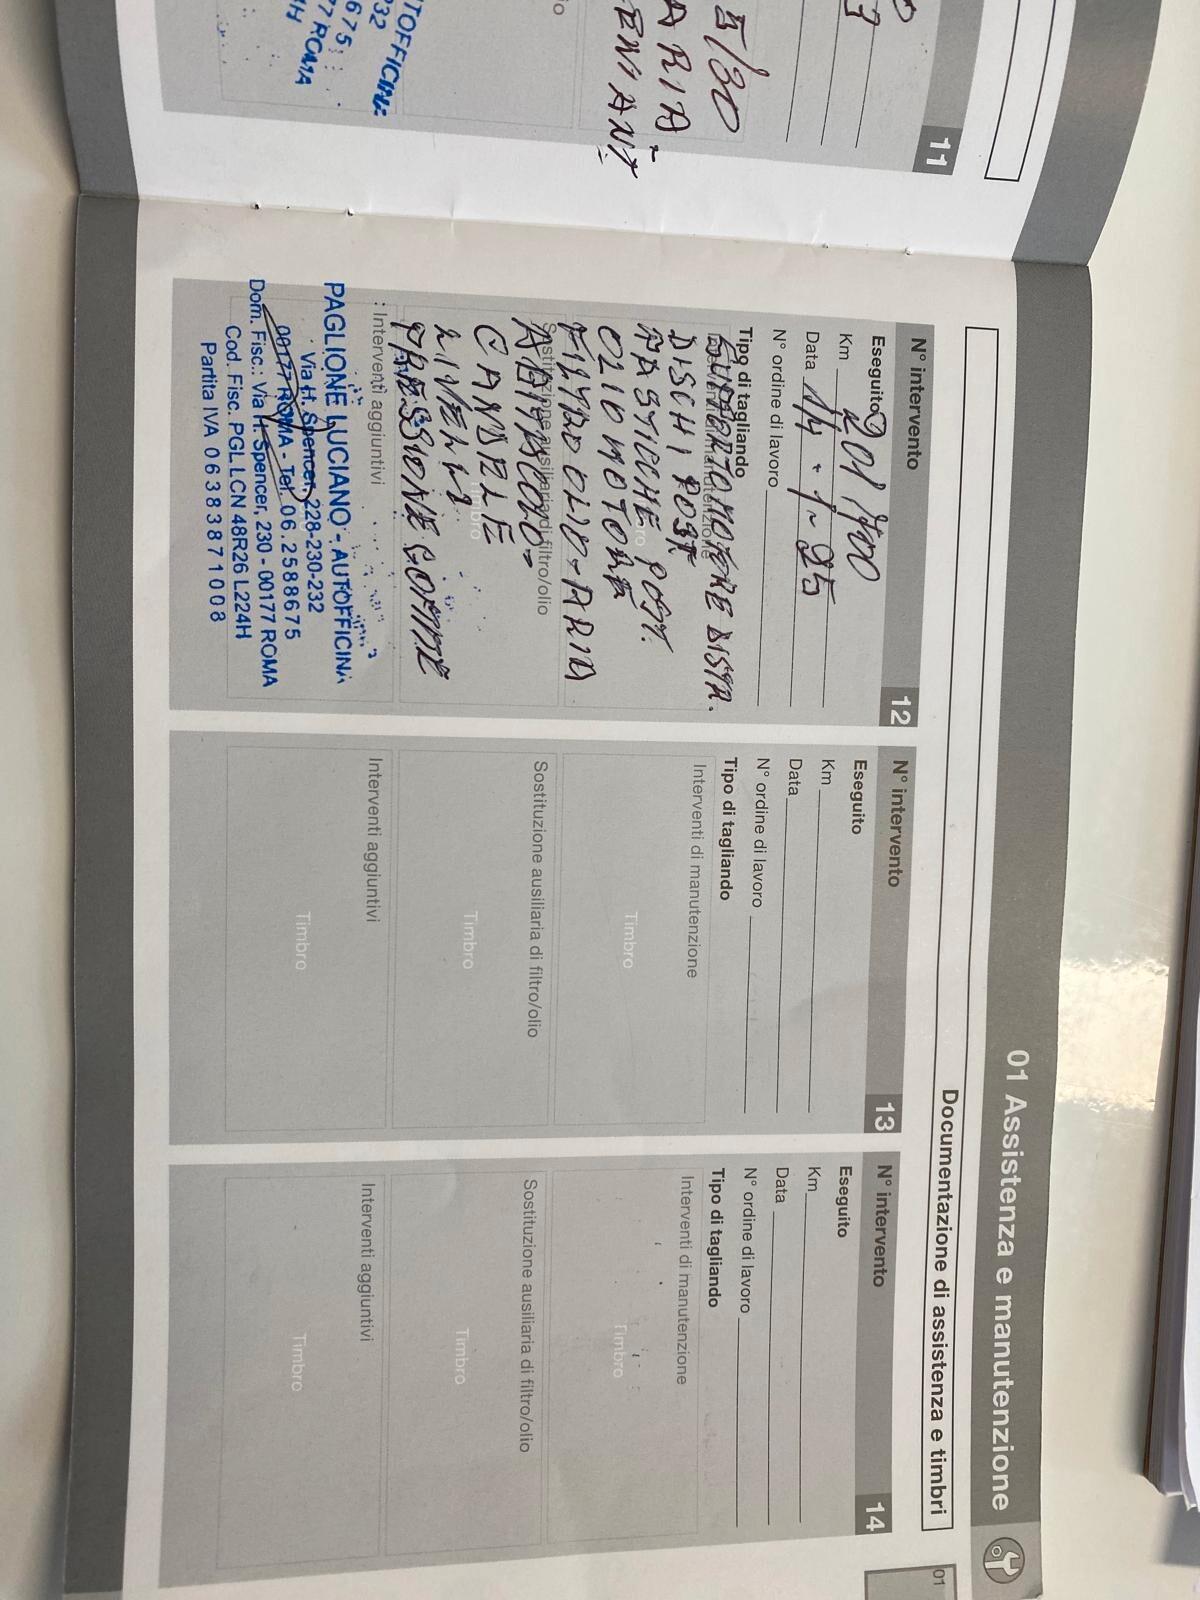 11
5/30
ARIA
TOFFICINA
32
675
77 ROMA
01 Assistenza e manutenzione
Documentazione di assistenza e timbri
01
N° intervento 12
Eseguito
Km 201.700
Data 14.1-25
N° ordine di lavoro
Tipo di tagliando
Interventi di manutenzione
SUPPORTO MOTORE DISTR.
DISCHI POST.
PASTICCHE POST.
OLIO MOTORE
FILTRO OLIO-ARIA
Sostituzione ausiliaria di filtro/olio
ABITACOLO-
CANDELE
LIVELLI
PRESSIONE GOMME
Interventi aggiuntivi
PAGLIONE LUCIANO - AUTOFFICINA
Via H. Spencer, 228-230-232
00177 ROMA - Tel. 06.2588675
Dom. Fisc.: Via H. Spencer, 230 - 00177 ROMA
Cod. Fisc. PGL LCN 48R26 L224H
Partita IVA 06383871008
N° intervento 13
Eseguito
Km
Data
N° ordine di lavoro
Tipo di tagliando
Interventi di manutenzione
Timbro
Sostituzione ausiliaria di filtro/olio
Timbro
Interventi aggiuntivi
Timbro
N° intervento 14
Eseguito
Km
Data
N° ordine di lavoro
Tipo di tagliando
Interventi di manutenzione
Timbro
Sostituzione ausiliaria di filtro/olio
Timbro
Interventi aggiuntivi
Timbro